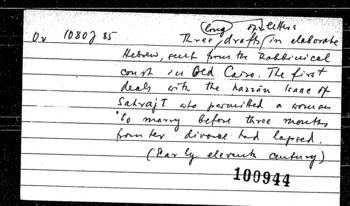 long or letters
Or 1080 J 85 Three drafts in elaborate
Hebrew, sent from the Rabbinical
court in Old Cairo. The first
deals with the hazzān Isaac of
Sahrajt who permitted a woman
to marry before three months
from her divorce had lapsed.
(Early eleventh century)
100944